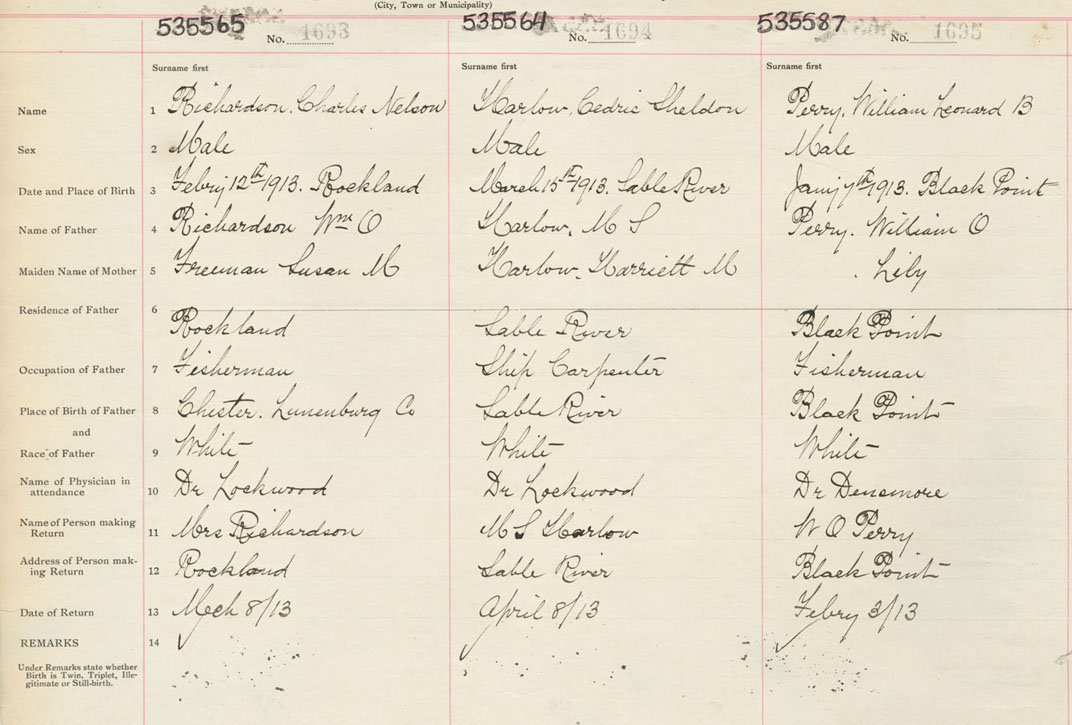 (City, Town or Municipality)
535565 No. 1693 535564 No. 1694 535587 No. 1695
Surname first Surname first Surname first
Name 1 Richardson, Charles Nelson Harlow, Cedric Sheldon Perry, William Leonard B
Sex 2 Male Male Male
Date and Place of Birth 3 Febry 12th 1913. Rockland March 15th 1913. Sable River Jany 7th 1913. Black Point
Name of Father 4 Richardson Wm O Harlow, M S Perry. William O
Maiden Name of Mother 5 Freeman Susan M Harlow, Harriett M Lily
Residence of Father 6 Rockland Sable River Black Point
Occupation of Father 7 Fisherman Ship Carpenter Fisherman
Place of Birth of Father 8 Chester. Lunenburg Co Sable River Black Point
and
Race of Father 9 White White White
Name of Physician in
attendance 10 Dr Lockwood Dr Lockwood Dr Densmore
Name of Person making
Return 11 Mrs Richardson M S Harlow W O Perry
Address of Person mak-
ing Return 12 Rockland Sable River Black Point
Date of Return 13 Mch 8/13 April 8/13 Febry 3/13
REMARKS 14
Under Remarks state whether
Birth is Twin, Triplet, Ille-
gitimate or Still-birth.